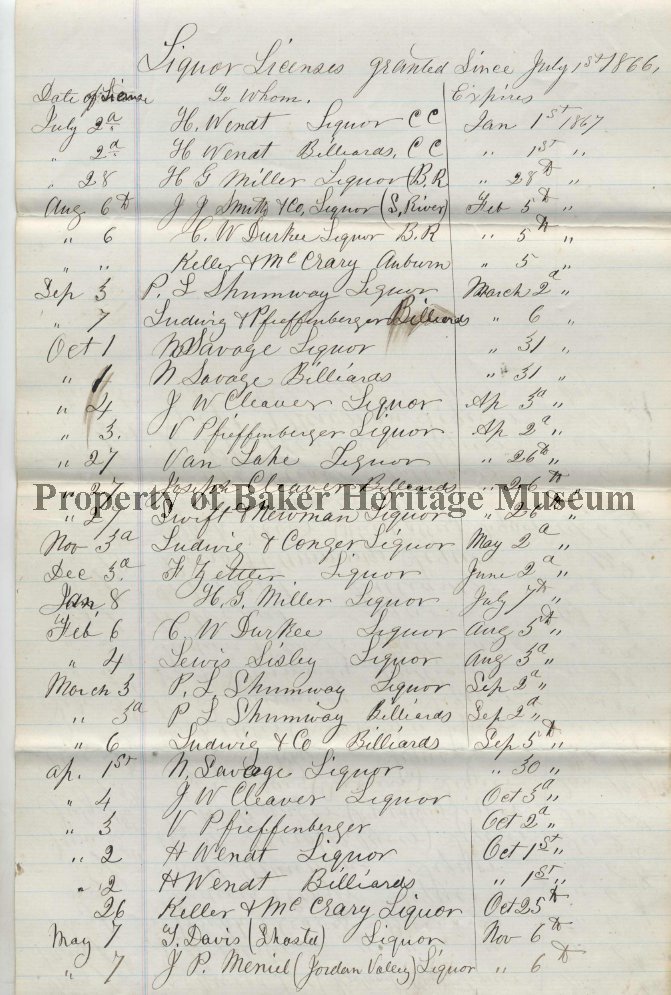 Liquor Licenses granted Since July 1st 1866,
Date of License To Whom. Expires
July 2d H. Wendt Liquor C C Jan 1st 1867
" 2d H Wendt Billiards, C C " 1st "
" 28 H G Miller Liquor (B.R " 28th "
Aug 6th J J Smith & Co, Liquor (S, River) Feb 5th "
" 6 C. W Durkee Liquor B.R " 5th "
" " Keller & McCrary Auburn " 5 "
Sep 3 P. L Shumway Liquor March 2d "
" 7 Ludwig & Pfieffenberger Billiards " 6 "
Oct 1 N Savage Liquor " 31 "
" 1 N Savage Billiards " 31 "
" 4 J W Cleaver Liquor Ap 3d "
" 3. V Pfieffenberger Liquor Ap 2d "
" 27 Van Lake Liquor " 26th "
" 27 Joseph Cleaver Billiards " 26th "
Property of Baker Heritage Museum
" Swift & Newman Liquor " 26th "
Nov 3d Ludwig & Conger Liquor May 2d "
Dec 3d F Zettler Liquor June 2d "
Jan, 8 H. G. Miller Liquor July 7th "
Feb 6 C W Durkee Liquor Aug 5th "
" 4 Lewis Sisley Liquor Aug 3d "
March 3 P. L. Shumway Liquor Sep 2d "
" 3d P L Shumway Billiards Sep 2d "
" 6 Ludwig & Co Billiards Sep 5th "
ap. 1st N. Savage Liquor " 30 "
" 4 J W Cleaver Liquor Oct 3d "
" 3 V Pfieffenberger Oct 2d "
" 2 H Wendt Liquor Oct 1st "
" 2 H Wendt Billiards " 1st "
26 Keller & McCrary Liquor Oct 25th
May 7 Davis (Shasta) Liquor Nov 6th
" 7 J P. Meniel (Jordan Valey) Liquor " 6th